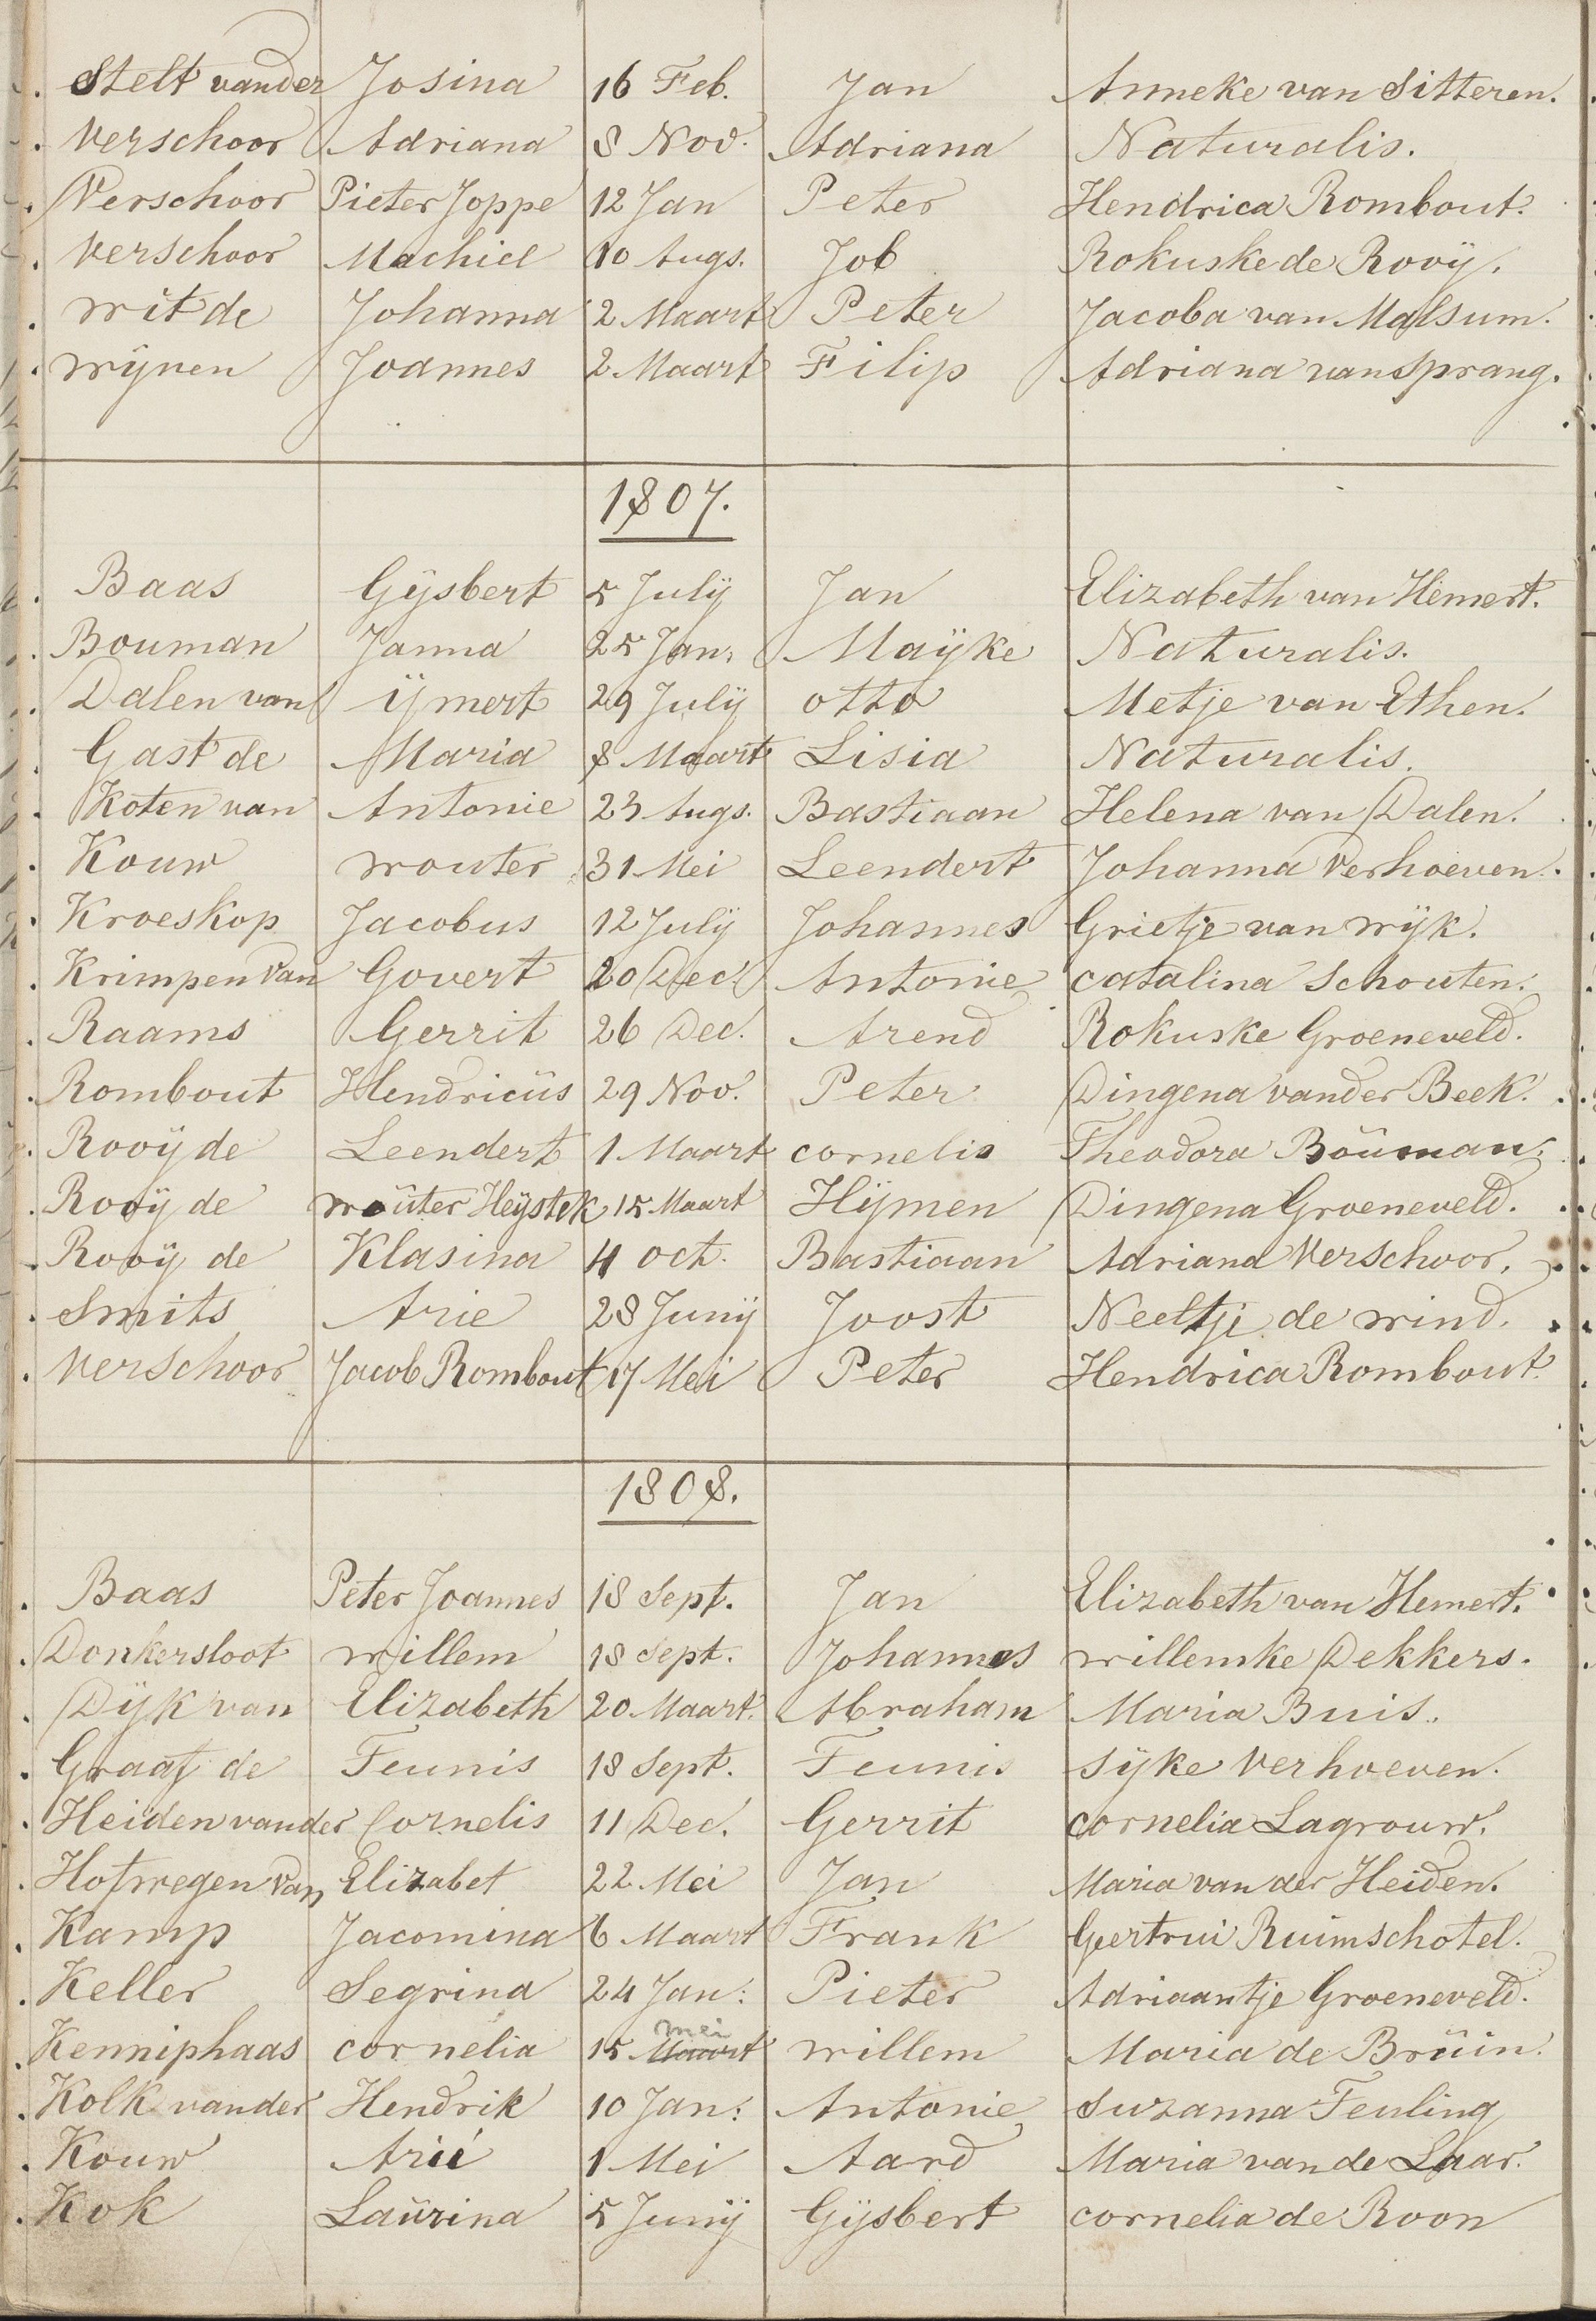 Stelt vander Josina 16 Feb. Jan Anneke van Sitteren.
Verschoor Adriana 8 Nov. Adriana Naturalis.
Verschoor Pieter Joppe 12 Jan Peter Hendrica Rombout.
Verschoor Machiel 10 Augs. Job Rokuske de Rooÿ.
wit de Johanna 2 Maart Peter Jacoba van Malsum.
wijnen Joannes 2 Maart Filip Adriana van Sprang.
1807.
Baas Gijsbert 5 Julÿ Jan Elizabeth van Hemert.
Bouman Janna 25 Jan. Maÿke Naturalis.
Dalen van ÿmert 29 Julÿ otto Metje van Ethen.
Gast de Maria 8 Maart Lisia Naturalis.
Koten van Antonie 23 Augs. Bastiaan Helena van Dalen.
Kouw wouter 31 Mei Leendert Johanna Verhoeven.
Kroeskop Jacobus 12 Julÿ Johannes Grietje van wÿk.
Krimpen van Govert 20 Dec. Antonie Catalina Schouten.
Raams Gerrit 26 Dec. Arend Rokuske Groeneveld.
Rombout Hendricüs 29 Nov. Peter Dingena vander Beek.
Rooÿ de Leendert 1 Maart cornelis Theodora Boüman.
Rooÿ de woüter Heÿstek 15 Maart Hÿmen Dingena Groeneveld.
Rooÿ de Klasina 4 oct. Bastiaan Adriana Verschoor.
Smits Arie 28 Junÿ Joost Neeltje de wind.
Verschoor Jacob Rombout 17 Mei Peter Hendrica Rombout.
1808.
Baas Peter Joannes 18 Sept. Jan Elizabeth van Hemert.
Donkersloot willem 18 Sept. Johannes willemke Dekkers.
Dÿk van Elizabeth 20 Maart. Abraham Maria Buis.
Graaf de Teunis 18 Sept. Teunis Sÿke Verhoeven.
Heiden vander Cornelis 11 Dec. Gerrit cornelia Lagrouw.
Hofwegen van Elizabet 22 Mei Jan Maria van der Heiden.
Kamp Jacomina 6 Maart Frank Geertrui Ruimschotel.
Keller Segrina 24 Jan: Pieter Adriaantje Groeneveld.
Kenniphaas cornelia 15 Maart mei willem Maria de Brüin.
Kolk vander Hendrik 10 Jan: Antonie Suzanna Teuling
Kouw Arie 1 Mei Aard Maria van de Laar.
Kok Laürina 5 Junÿ Gÿsbert cornelia de Roon